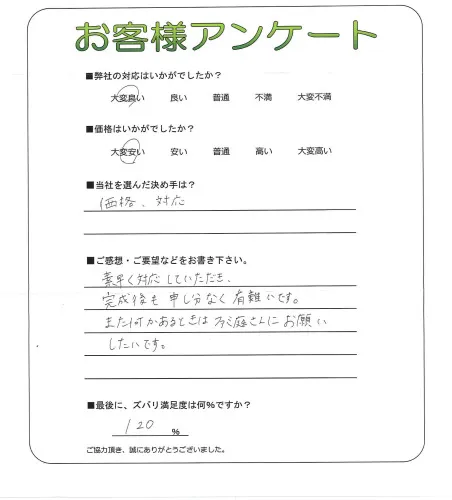 お客様アンケート
■弊社の対応はいかがでしたか？
大変良い 良い 普通 不満 大変不満
■価格はいかがでしたか？
大変安い 安い 普通 高い 大変高い
■当社を選んだ決め手は？
価格、対応
■ご感想・ご要望などをお書き下さい。
素早く対応していただき、
完成後も申し分なく有難いです。
また何かあるときは 庭さんにお願い
したいです。
■最後に、ズバリ満足度は何%ですか？
120 %
ご協力頂き、誠にありがとうございました。